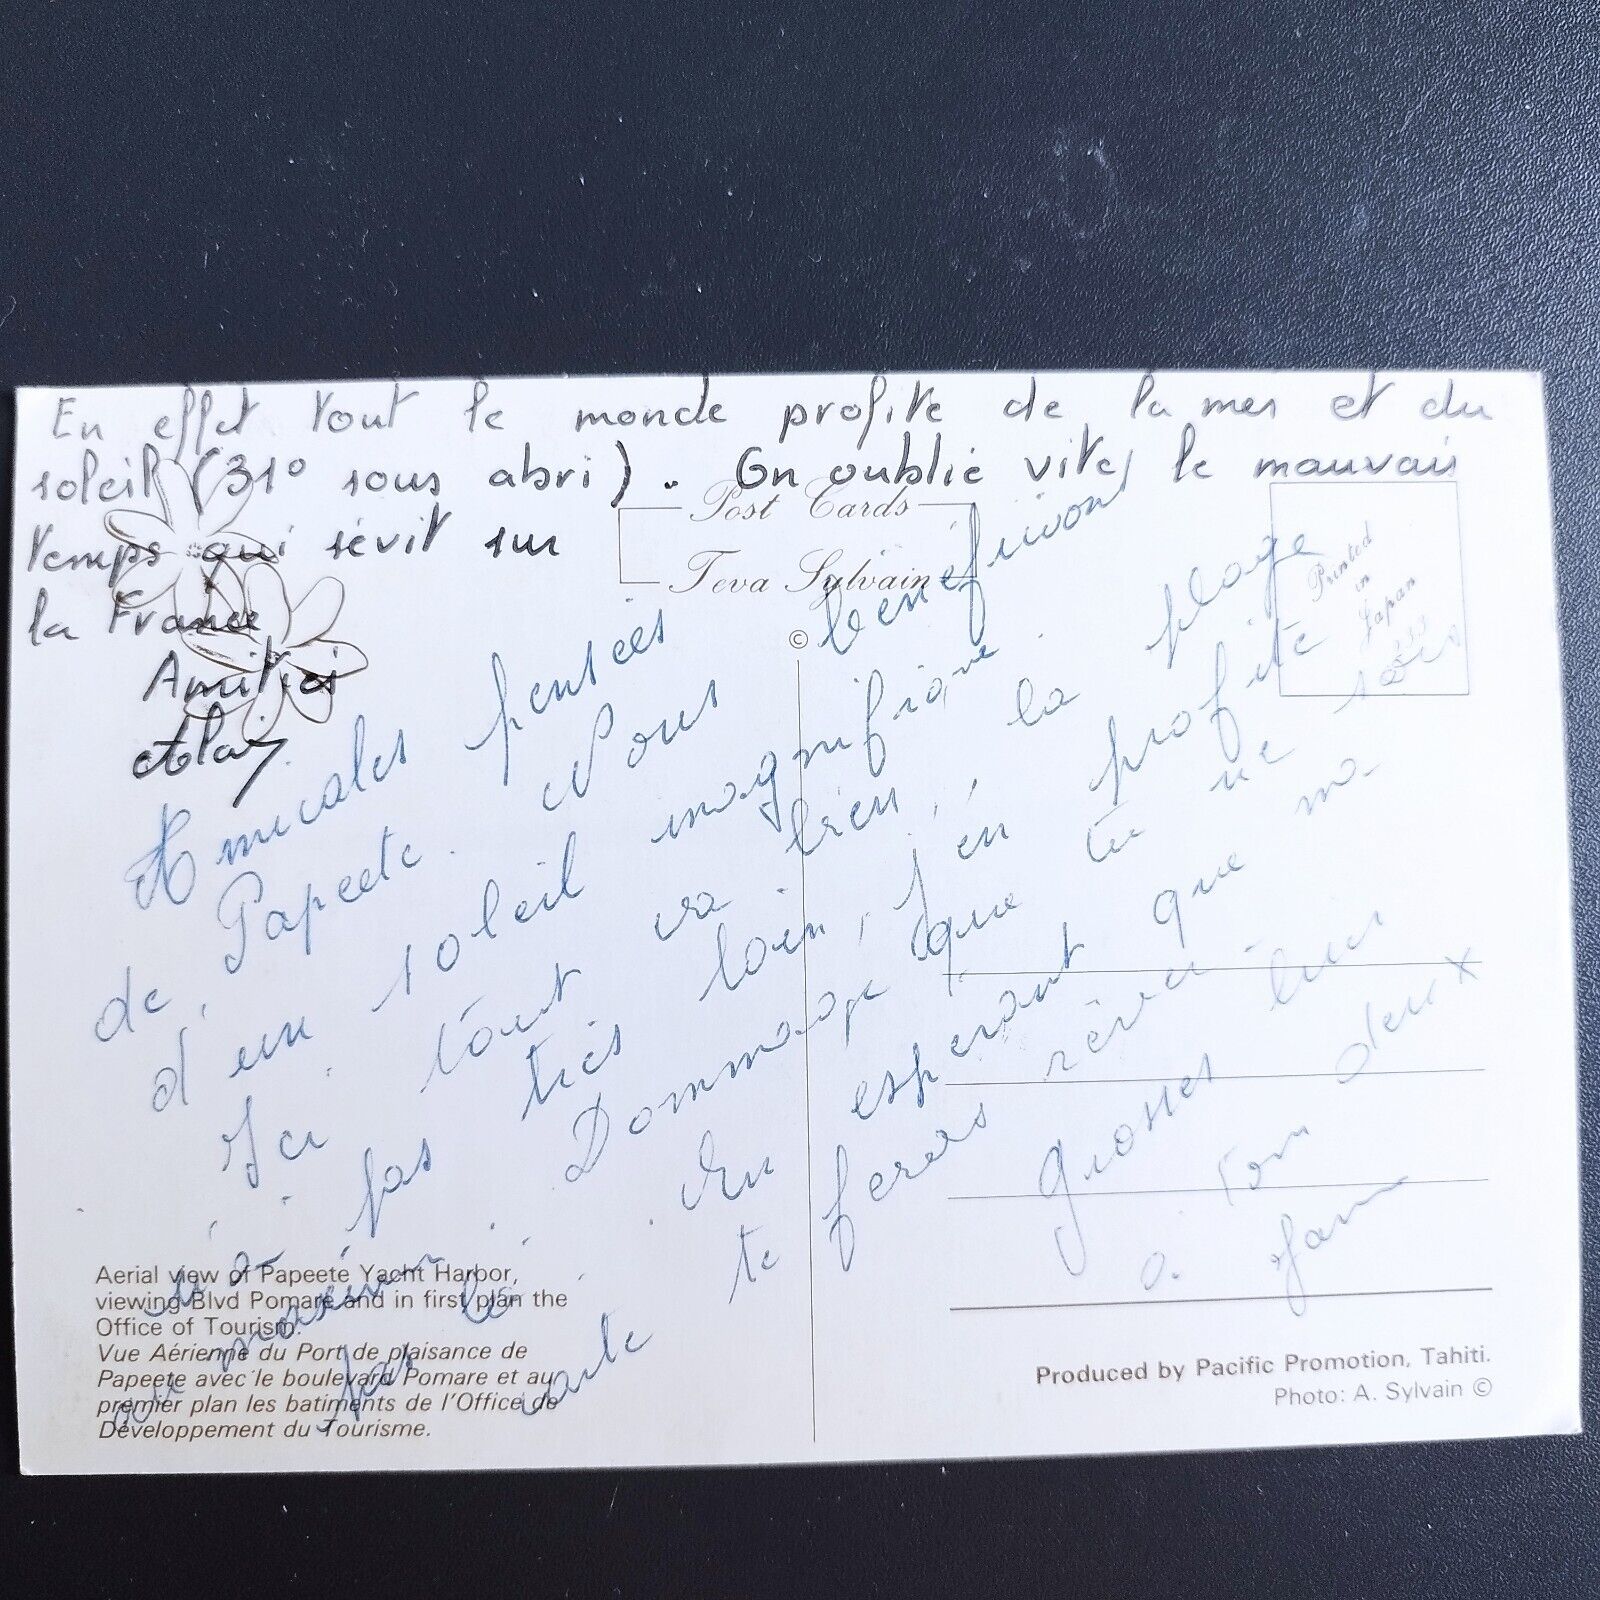 En effet tout le monde profite de la mer et du
soleil (31° sous abri). On oublie vite le mauvais
temps qui sévit sur
la France
Amitiés
Post Cards
Teva Sylvain
©
Printed
in
Japan
Amicales pensées
de Papeete. Nous bénéficions
d'un soleil magnifique
Ici tout va bien, la plage
n'est pas très loin, j'en profite
au maximum. Dommage que tu ne sois
pas là. En espérant que ma
carte te feras rêver.
Grosses bises
à Tom deux
Aerial view of Papeete Yacht Harbor,
viewing Blvd Pomare and in first plan the
Office of Tourism.
Vue Aérienne du Port de plaisance de
Papeete avec le boulevard Pomare et au
premier plan les batiments de l'Office de
Développement du Tourisme.
Produced by Pacific Promotion, Tahiti.
Photo: A. Sylvain ©